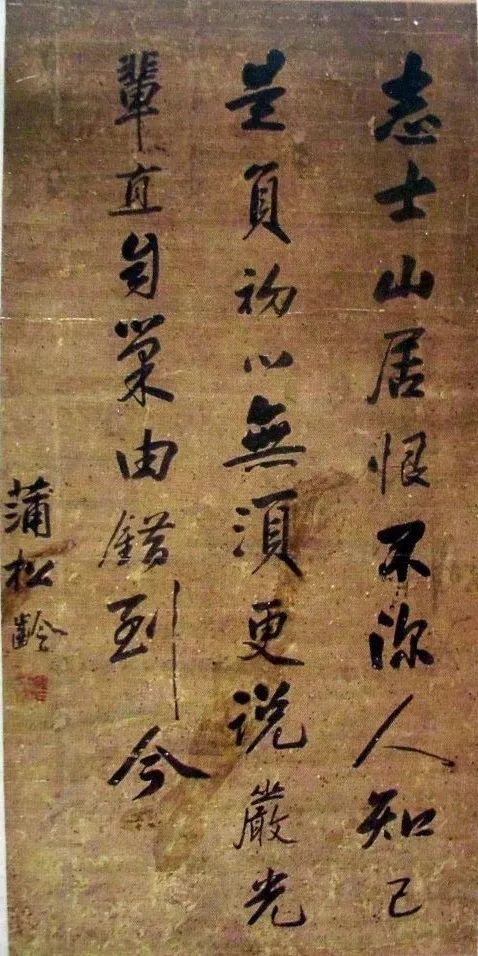 志士山居恨不深人知已
是負初心無須更説嚴光
輩直自巢由錯到今
蒲松齡